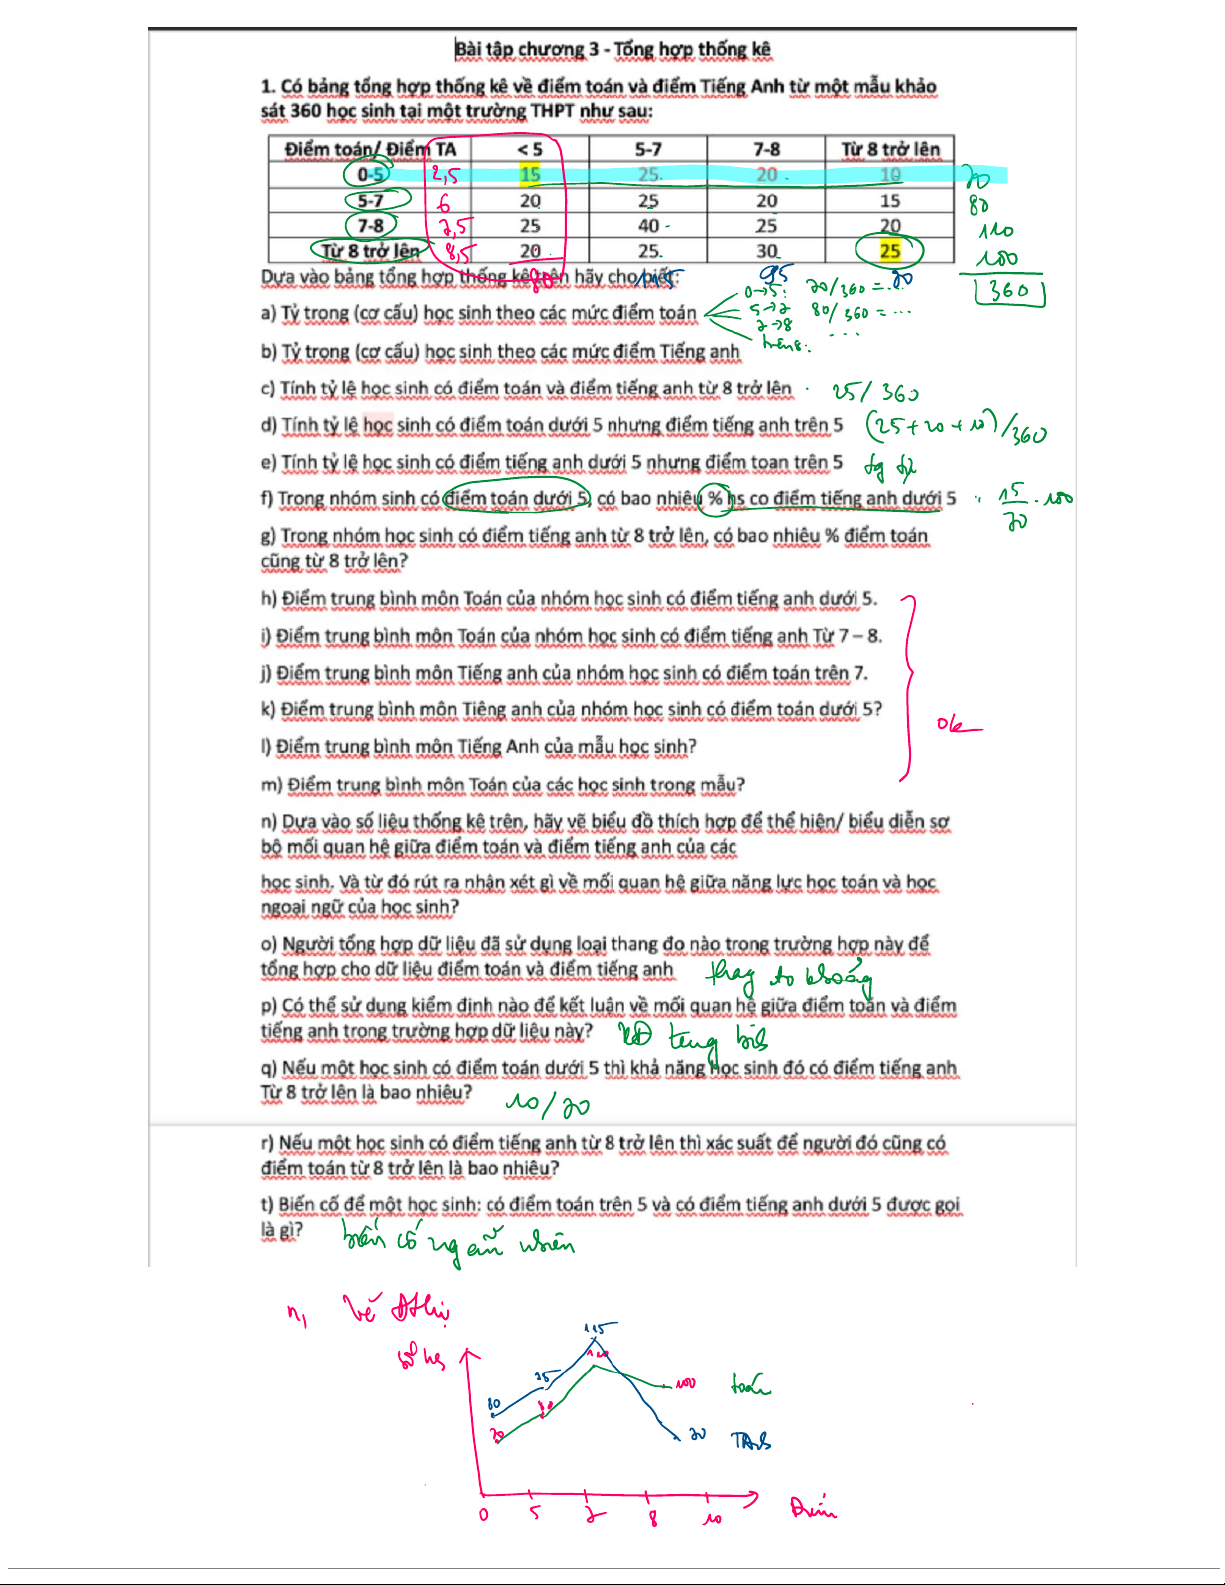 Bài tập chương 3 - Tổng hợp thống kê
1. Có bảng tổng hợp thống kê về điểm toán và điểm Tiếng Anh từ một mẫu khảo
sát 360 học sinh tại một trường THPT như sau:
Điểm toán/ Điểm TA < 5 5-7 7-8 Từ 8 trở lên
0-5 2,5 15 25 20 10 70
5-7 6 20 25 20 15 80
7-8 7,5 25 40 25 20 110
Từ 8 trở lên 8,5 20 25 30 25 100
Dựa vào bảng tổng hợp thống kê trên hãy cho biết: 80 115 95 70 360
0→5: 70/360 = ...
a) Tỷ trọng (cơ cấu) học sinh theo các mức điểm toán 5→7 80/360 = ...
7→8 ...
b) Tỷ trọng (cơ cấu) học sinh theo các mức điểm Tiếng anh trên 8:
c) Tính tỷ lệ học sinh có điểm toán và điểm tiếng anh từ 8 trở lên 25/360
d) Tính tỷ lệ học sinh có điểm toán dưới 5 nhưng điểm tiếng anh trên 5 (25+20+10)/360
e) Tính tỷ lệ học sinh có điểm tiếng anh dưới 5 nhưng điểm toan trên 5 tg tự
f) Trong nhóm sinh có điểm toán dưới 5, có bao nhiêu % hs co điểm tiếng anh dưới 5 15/70 . 100
g) Trong nhóm học sinh có điểm tiếng anh từ 8 trở lên, có bao nhiêu % điểm toán
cũng từ 8 trở lên?
h) Điểm trung bình môn Toán của nhóm học sinh có điểm tiếng anh dưới 5.
i) Điểm trung bình môn Toán của nhóm học sinh có điểm tiếng anh Từ 7 – 8.
j) Điểm trung bình môn Tiếng anh của nhóm học sinh có điểm toán trên 7.
k) Điểm trung bình môn Tiêng anh của nhóm học sinh có điểm toán dưới 5?
ok
l) Điểm trung bình môn Tiếng Anh của mẫu học sinh?
m) Điểm trung bình môn Toán của các học sinh trong mẫu?
n) Dựa vào số liệu thống kê trên, hãy vẽ biểu đồ thích hợp để thể hiện/ biểu diễn sơ
bộ mối quan hệ giữa điểm toán và điểm tiếng anh của các
học sinh. Và từ đó rút ra nhận xét gì về mối quan hệ giữa năng lực học toán và học
ngoại ngữ của học sinh?
o) Người tổng hợp dữ liệu đã sử dụng loại thang đo nào trong trường hợp này để
tổng hợp cho dữ liệu điểm toán và điểm tiếng anh thag đo khoảng
p) Có thể sử dụng kiểm định nào để kết luận về mối quan hệ giữa điểm toán và điểm
tiếng anh trong trường hợp dữ liệu này? KĐ trung bình
q) Nếu một học sinh có điểm toán dưới 5 thì khả năng học sinh đó có điểm tiếng anh
Từ 8 trở lên là bao nhiêu? 10/70
r) Nếu một học sinh có điểm tiếng anh từ 8 trở lên thì xác suất để người đó cũng có
điểm toán từ 8 trở lên là bao nhiêu?
t) Biến cố để một học sinh: có điểm toán trên 5 và có điểm tiếng anh dưới 5 được gọi
là gì? biến cố ngẫu nhiên
n, Vẽ Đthị
số hs
115
110
95
80 80 100 toán
70 70 TAnh
0 5 7 8 10 Điểm